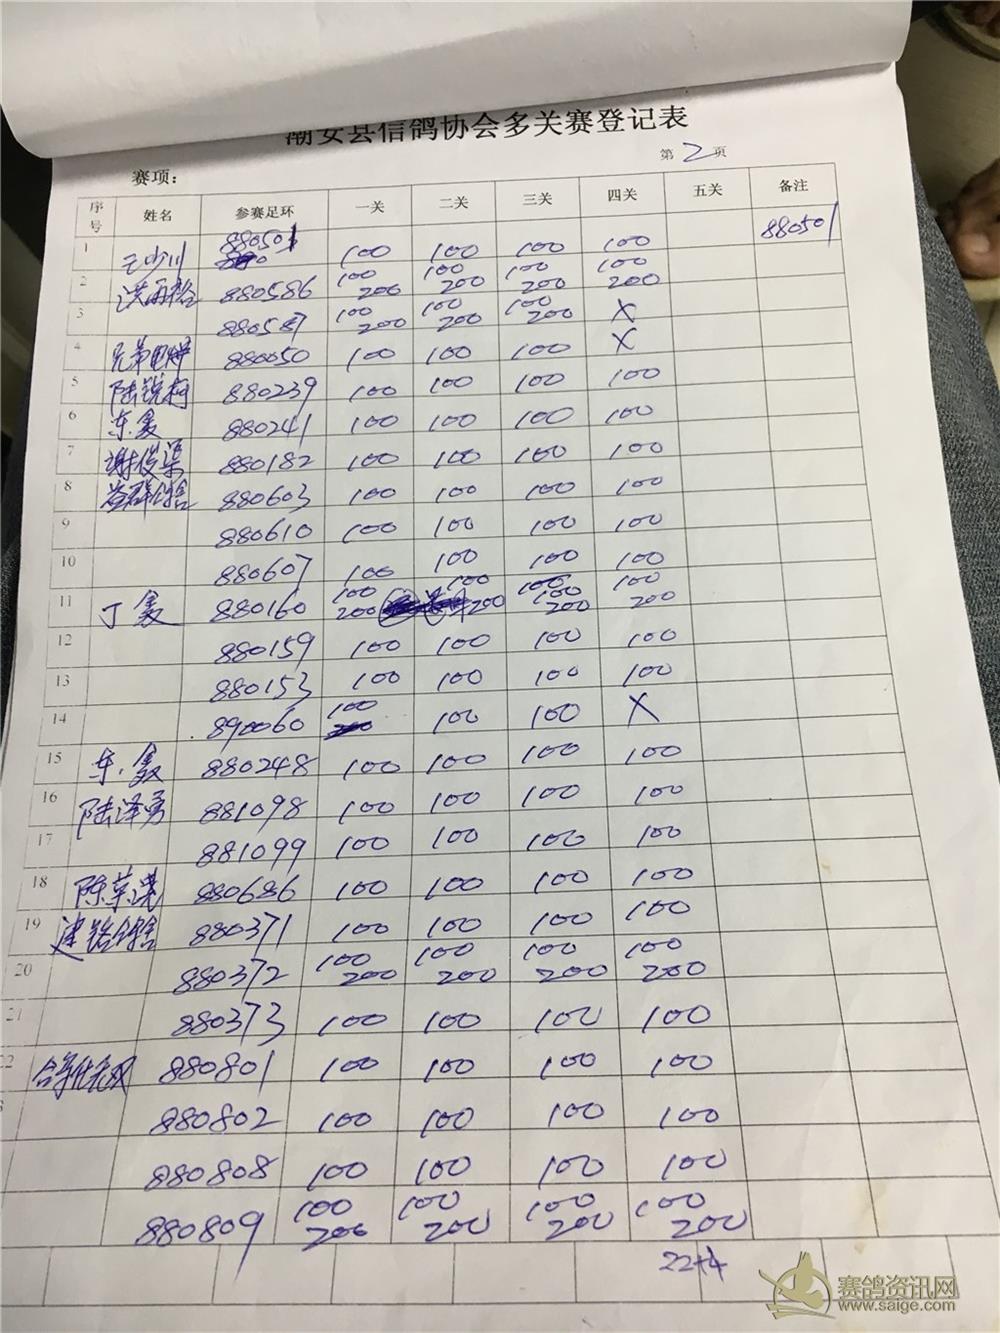 潮安县信鸽协会多关赛登记表
第2页
赛项：
序号 姓名 参赛足环 一关 二关 三关 四关 五关 备注
1 880501 100 100 100 100 880501
2 洪再裕 880586 100 200 100 200 100 200 100 200
3 880587 100 200 100 200 100 200 X
4 880050 100 100 100 X
5 陆锐柯 880239 100 100 100 100
6 东.鑫 880241 100 100 100 100
7 谢俊渠 880182 100 100 100 100
8 益群鸽舍 880603 100 100 100 100
9 880610 100 100 100 100
10 880607 100 100 100 100
11 丁鑫 880160 100 200 100 200 100 100 200 100 200
12 880159 100 100 100 100
13 880153 100 100 100 100
14 890060 100 100 100 X
15 东.鑫 880248 100 100 100 100
16 陆泽勇 881098 100 100 100 100
17 881099 100 100 100 100
18 陈荣洪 880686 100 100 100 100
19 建铭鸽舍 880371 100 100 100 100
20 880372 100 200 100 200 100 200 100 200
21 880373 100 100 100 100
22 880801 100 100 100 100
880802 100 100 100 100
880808 100 100 100 100
880809 100 200 100 200 100 200 100 200
22+4
赛鸽资讯网
www.saige.com